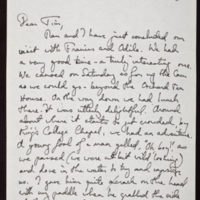 Dear Tim,
Nan and I have just concluded our
visit with Francis and Odile. We had
a very good time - a truly interesting one.
We canoed on Saturday as far up the Cam
as we could go - beyond the Orchard Tea
House. On the way down we had lunch
there. It was utterly delightful. Around
about where it starts to get crowded, by
King's College Chapel, we had an adventure.
A young fool of a man yelled, "Oh boy!" as
we passed (we were without wild looking)
and dove in the water to try and capsize
us. I gave him quite a crack on the head
with my paddle when he grabbed the side